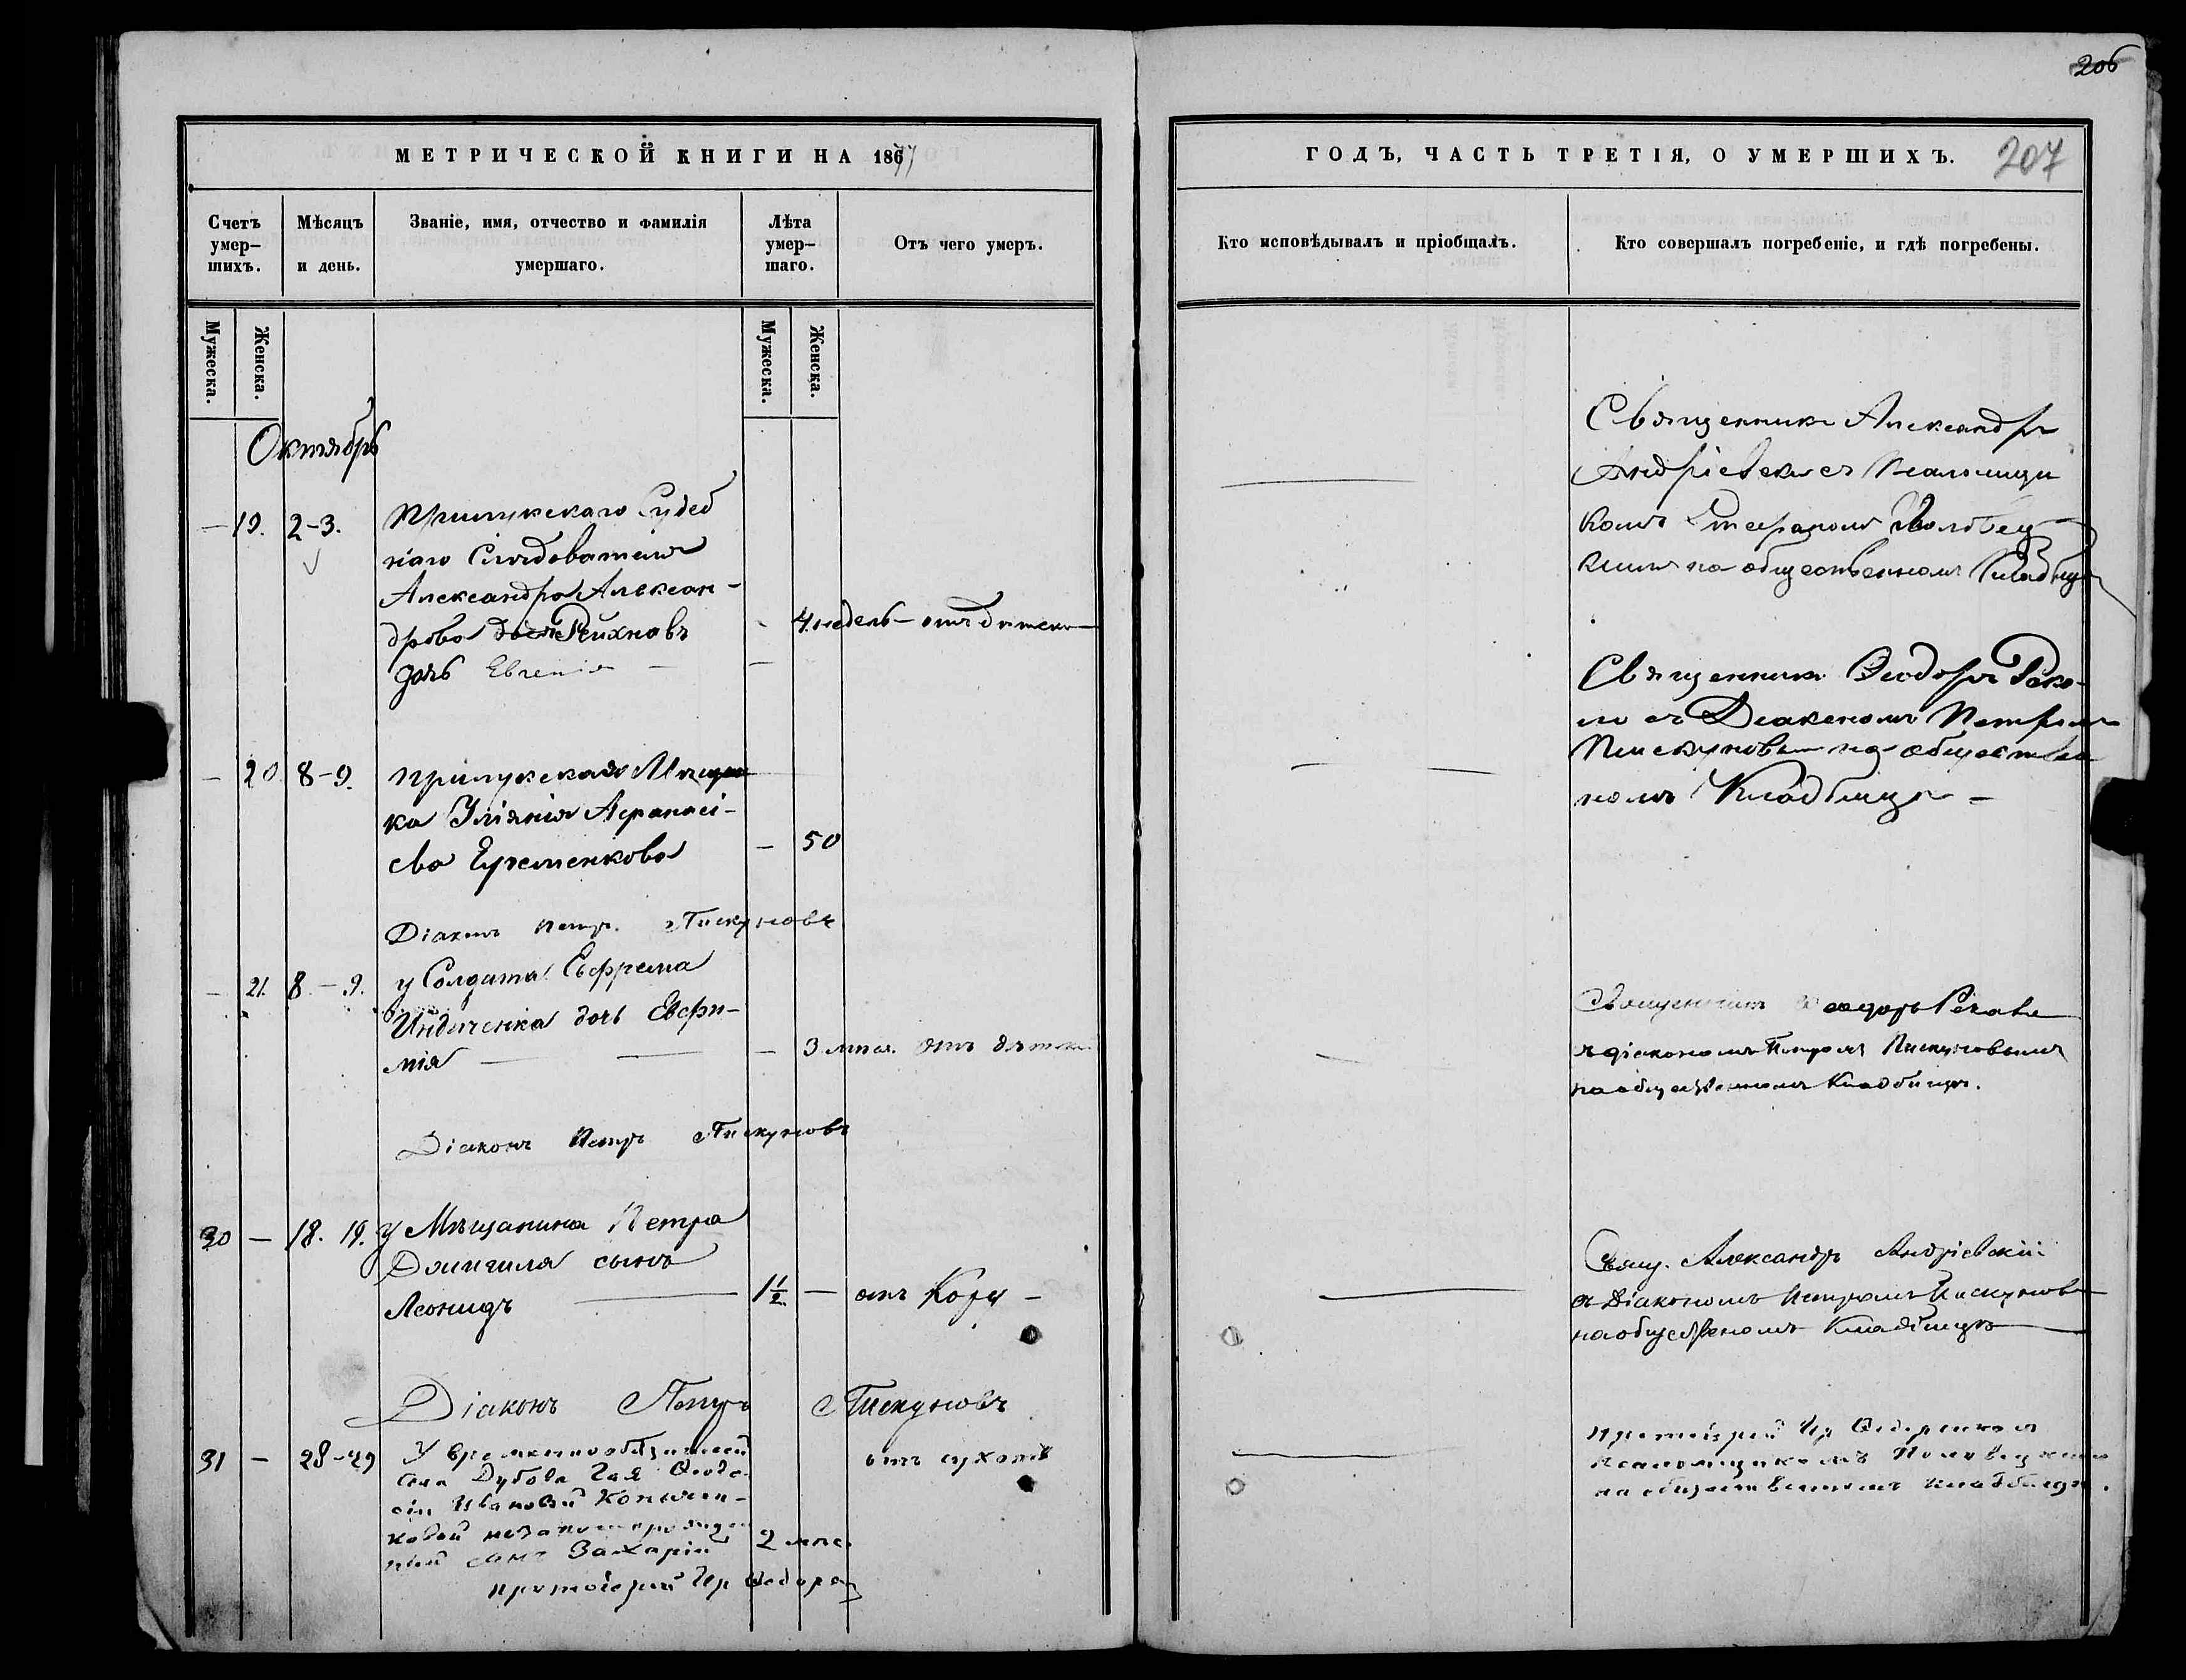 206
МЕТРИЧЕСКОЙ КНИГИ НА 1867
ГОДЪ, ЧАСТЬ ТРЕТІЯ, О УМЕРШИХЪ.
207
Счетъ умер-шихъ.
Мѣсяцъ и день.
Званіе, имя, отчество и фамилія умершаго.
Лѣта умер-шаго.
Отъ чего умеръ.
Кто исповѣдывалъ и пріобщалъ.
Кто совершалъ погребеніе, и гдѣ погребены.
Мужеска.
Женска.
Мужеска.
Женска.
Октябрь
— 19. 2-3.
Прилукскаго Судеб
наго Слѣдователя
Александра Алексан-
дрова
дочь Евгенія —
4 недель — отъ
Священникъ Александръ
Андріевскій съ Псаломщи
комъ
на общественномъ Кладбищѣ
— 20. 8-9.
Прилукская Мѣщан
ка Уліянія Афанасі-
ева Еременкова
— 50
Священникъ Ѳеодоръ
съ Діакономъ Петромъ
Пискуновымъ на обществен
номъ Кладбищѣ —
Діаконъ Петръ Пискуновъ
— 21. 8-9.
у Солдата Ефрема
дочь Евфи-
мія —
— 3 мѣся. отъ
Священникъ Ѳеодоръ
съ діакономъ Петромъ Пискуновымъ
на общественномъ Кладбищѣ.
Діаконъ Петръ Пискуновъ
30 — 18. 19.
у Мѣщанина Петра
сынъ
Леонидъ —
1½ — отъ Кору —
Свящ. Александръ Андріевскій
съ Діакономъ Петромъ Пискуновы
на общественомъ Кладбищѣ
Діаконъ Петръ Пискуновъ
31 — 28-29
У временнообязанной
села Дубова Гая Ѳеодо-
сіи Ивановой
ковой незаконнорожден
ный сынъ Захарій
2 мѣс.
отъ сухоты
Протоіерей
псаломщикомъ
на общественномъ кладбищѣ.
протоіерей